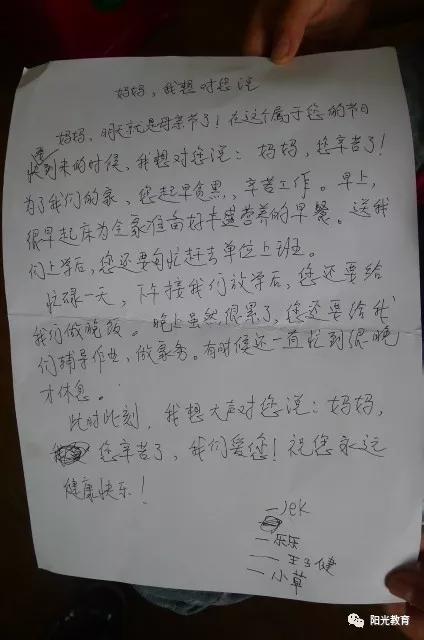 妈妈，我想对您说
妈妈，明天就是母亲节了！在这个属于您的节日
快到来的时候，我想对您说：妈妈，您辛苦了！
为了我们的家，您起早贪黑，辛苦工作。早上，
很早起床为全家准备好丰盛营养的早餐。送我
们上学后，您还要匆忙赶去单位上班。
忙碌一天，下午接我们放学后，您还要给
我们做晚饭。晚上虽然很累了，您还要给我
们辅导作业，做家务。有时候还一直忙到很晚
才休息。
此时此刻，我想大声对您说：妈妈，
您辛苦了，我们爱您！祝您永远
健康快乐！
—Jek
—乐乐
—王子健
—小草
阳光教育